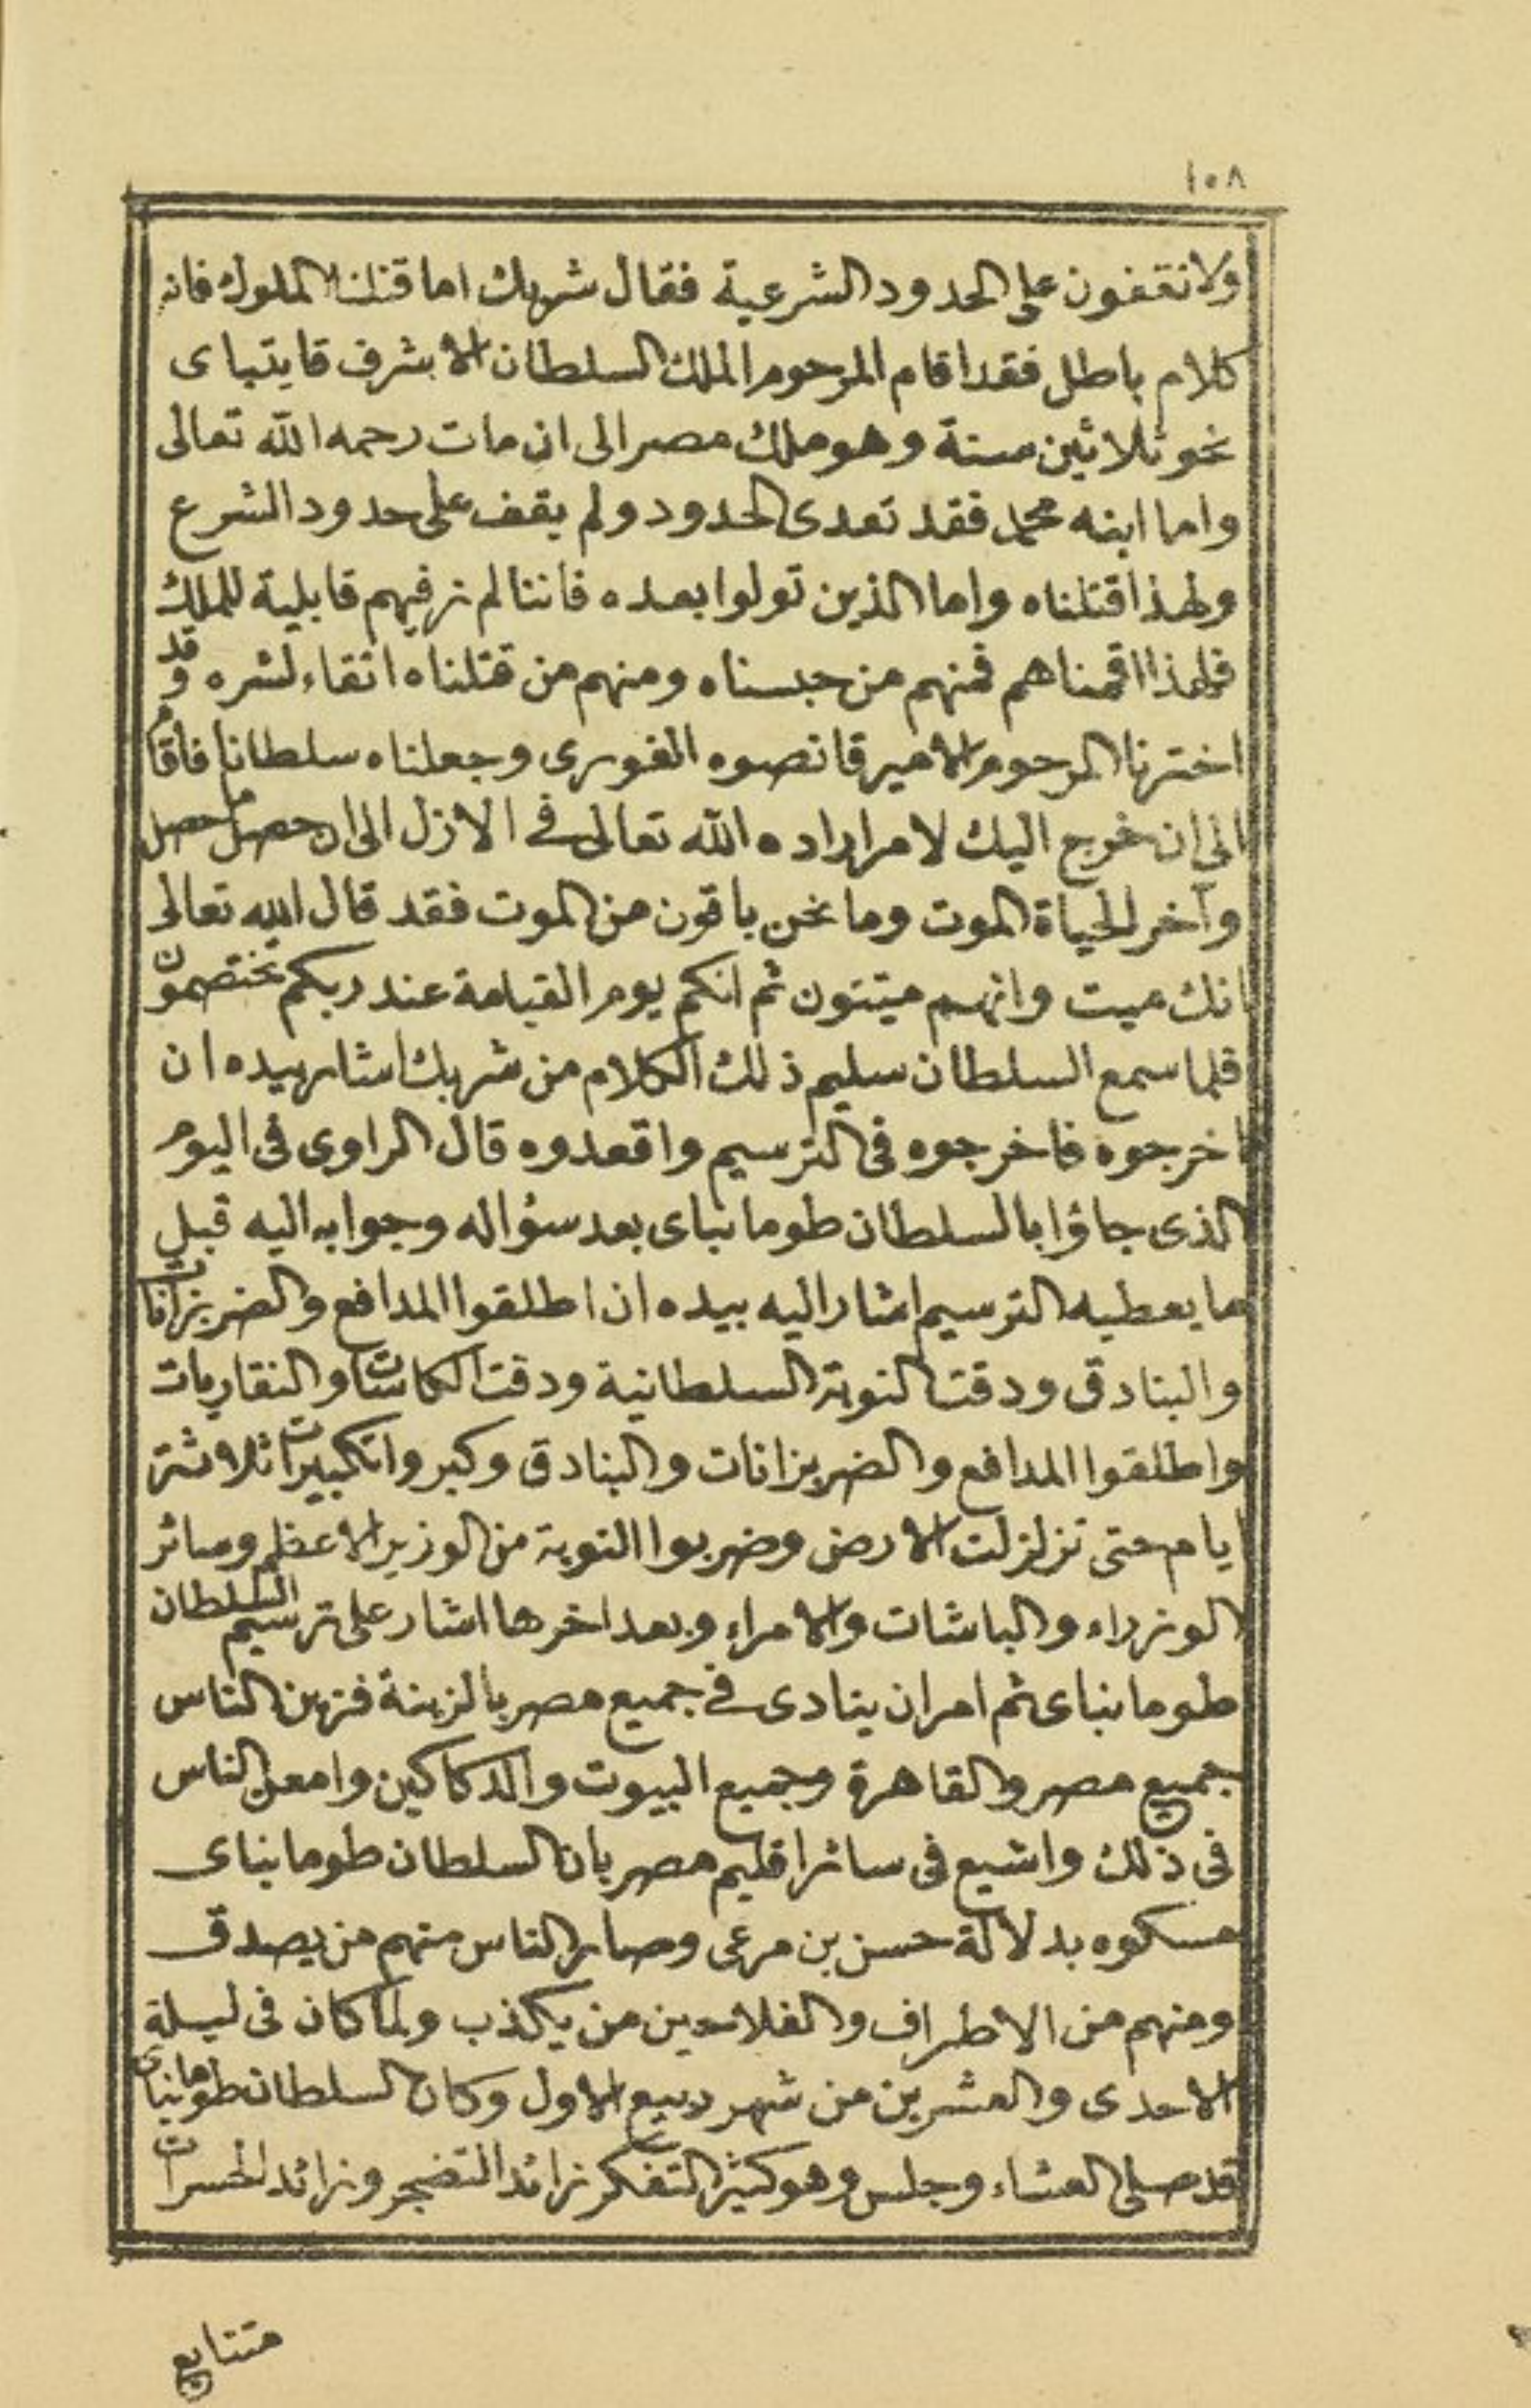 ١٠٨
ولا تقفون على الحدود الشرعية فقال شربك اما قتلنا الملوك فانه
كلام باطل فقد اقام المرحوم الملك السلطان الاشرف قايتباى
نحو ثلاثين سنة وهو ملك مصر الى ان مات رحمه الله تعالى
واما ابنه محمد فقد تعدى الحدود ولم يقف على حدود الشرع
ولهذا قتلناه واما الذين تولوا بعده فاننا لم نر فيهم قابلية للملك
فلهذا اقمناهم فمنهم من حبسناه ومنهم من قتلناه اتقاء لشره وقد
اخترنا المرحوم الامير قانصوه الغورى وجعلناه سلطانا فاقام
الى ان خرج اليك لامر اراده الله تعالى فى الازل الى ان حصل ما حصل
وآخر الحياة الموت وما نحن باقون من الموت فقد قال الله تعالى
انك ميت وانهم ميتون ثم انكم يوم القيامة عند ربكم تختصمون
فلما سمع السلطان سليم ذلك الكلام من شربك اشار بيده ان
اخرجوه فاخرجوه فى الترسيم واقعدوه قال الراوى فى اليوم
الذى جاؤا بالسلطان طومانباى بعد سؤاله وجوابه اليه قبل
ما يعطيه الترسيم اشار اليه بيده ان اطلقوا المدافع والضربزانات
والبنادق ودقت النوبة السلطانية ودقت الكاسات والنقاريات
واطلقوا المدافع والضربزانات والبنادق وكبروا تكبيرات ثلاثة
ايام حتى تزلزلت الارض وضربوا النوبة من الوزير الاعظم وسائر
الوزراء والباشات والامراء وبعد اخرها اشار على ترسيم السلطان
طومانباى ثم امر ان ينادى فى جميع مصر بالزينة فزين الناس
جميع مصر والقاهرة وجميع البيوت والدكاكين وامعن الناس
فى ذلك واشيع فى سائر اقليم مصر بان السلطان طومانباى
مسكوه بدلالة حسن بن مرعى وصار الناس منهم من يصدق
ومنهم من الاطراف والفلاحين من يكذب ولما كان فى ليلة
الاحدى والعشرين من شهر ربيع الاول وكان السلطان طومانباى
قد صلى العشاء وجلس وهو كثير التفكر زائد التضجر وزائد الحسرات
متتابع